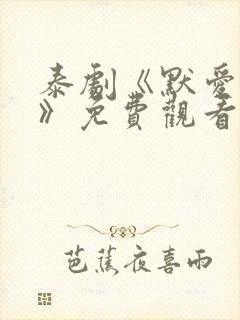 泰劇《默愛
》免費觀看
芭蕉夜喜雨